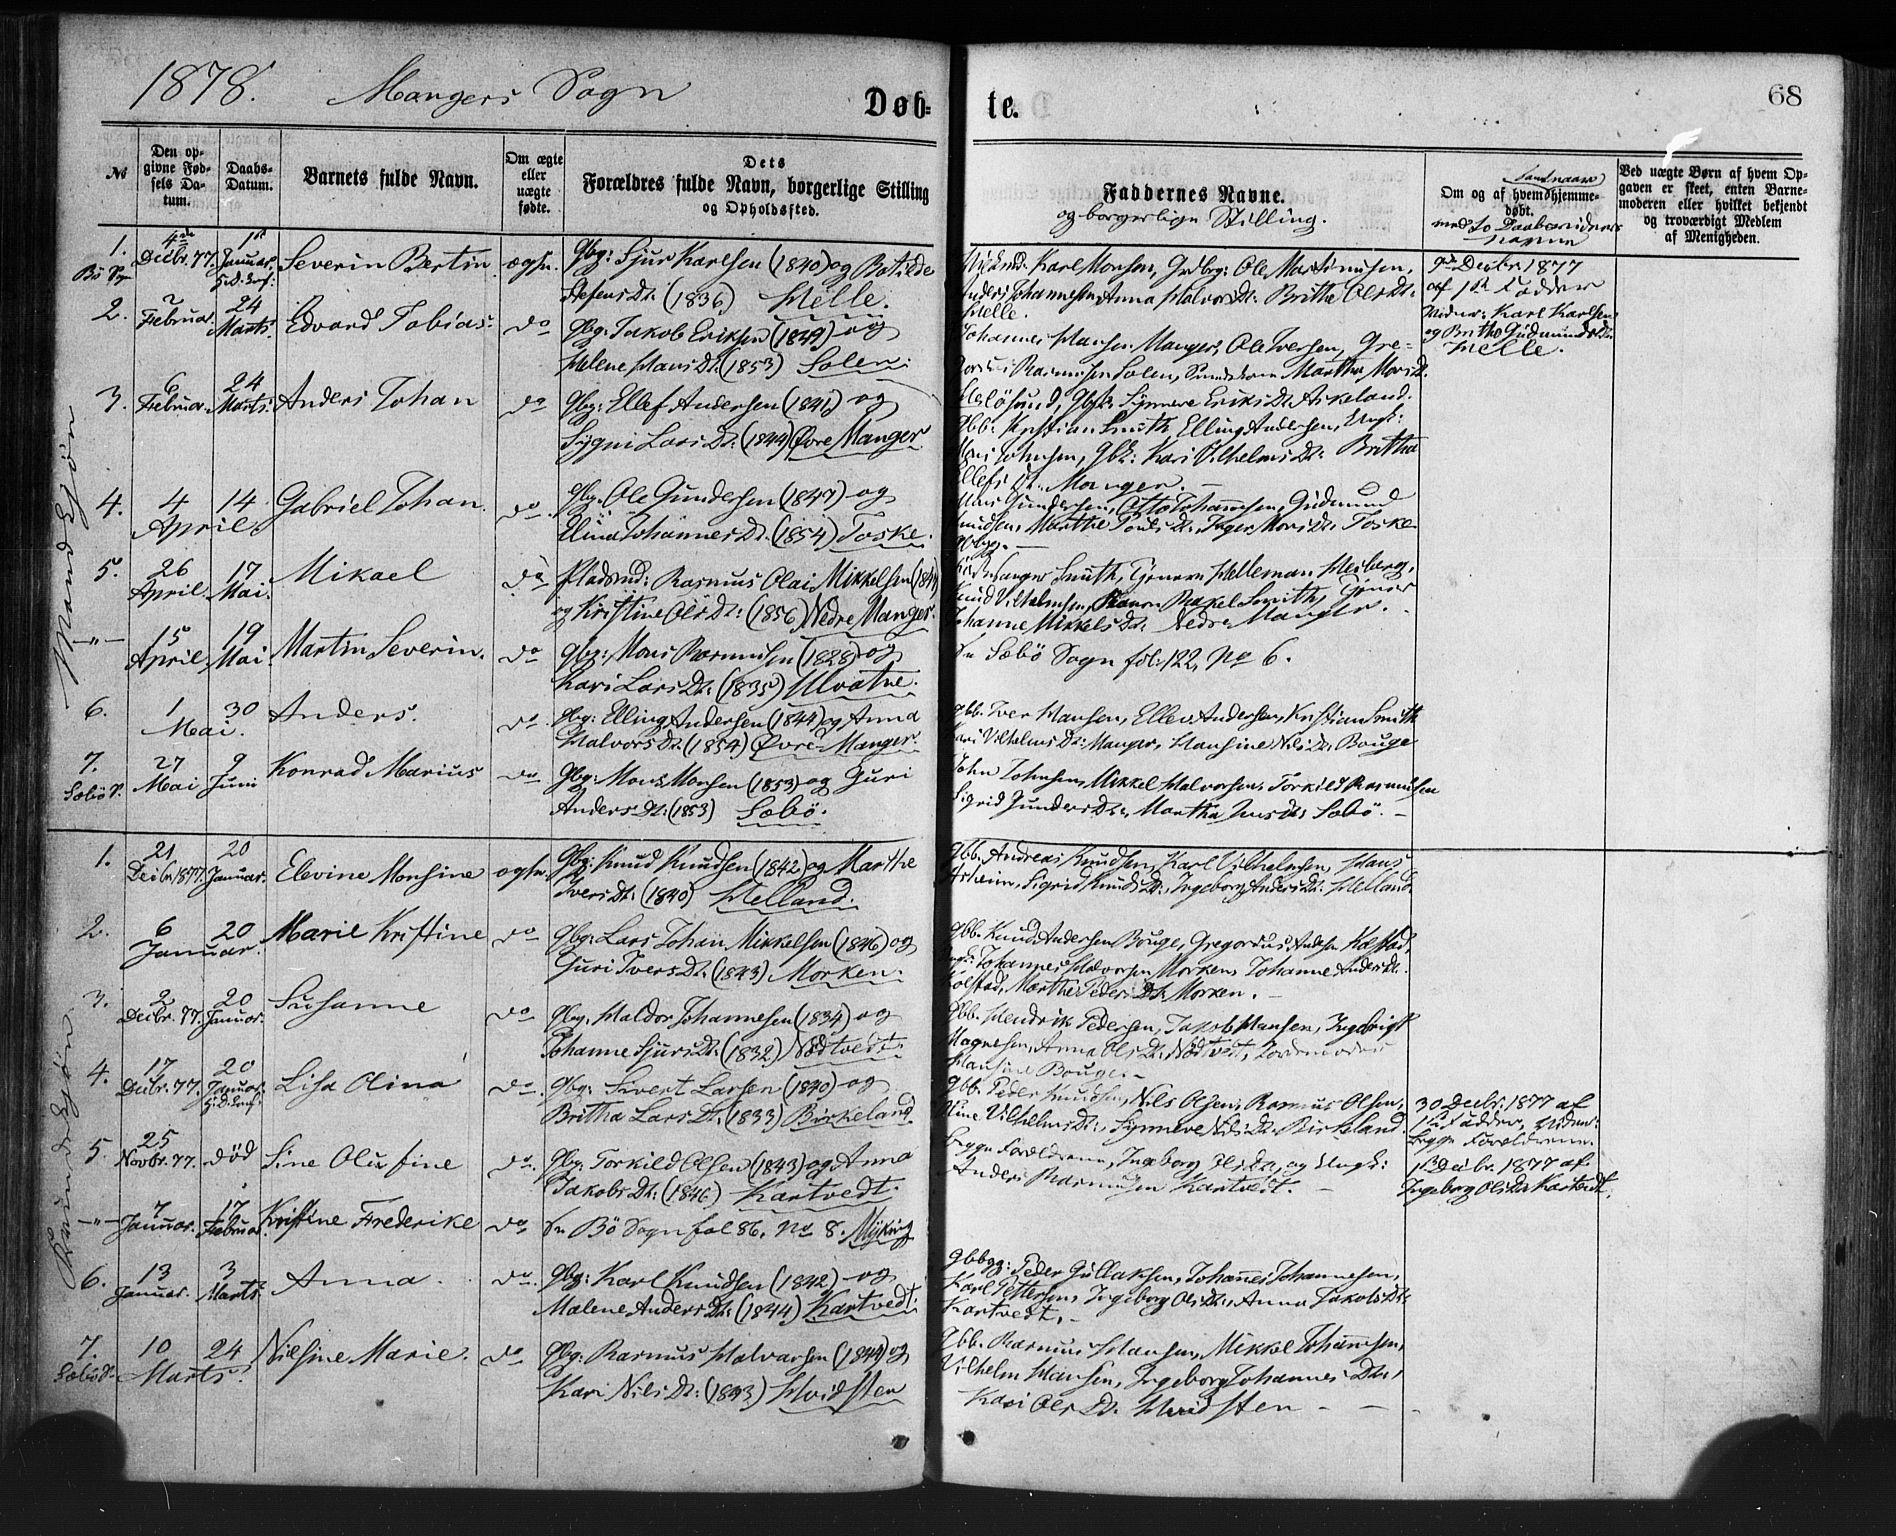 1878. Mangers Sogn
Døb=
te.
68
№
Den opgivne Fødsels Datum.
Daabs-Datum.
Barnets fulde Navn.
Om ægte eller uægte fødte.
Dets Forældres fulde Navn, borgerlige Stilling og Opholdssted.
Faddernes Navne.
og borgerlige Stilling.
Om og af hvem hjemmedøbt.
Ved uægte Børn af hvem Opgaven er skeet, enten Barnemoderen eller hvilket bekjendt og troværdigt Medlem af Menigheden.
Mand Kjøn
1. 4de Decbr. 77. 1st Januar Severin Bertin ægte. Gbg: Sjur Karlsen (1840) og Botilde
Stefens Dt: (1836) Helle.
Karl Monsen, Ole Martinusen,
Anders Johannesen Anna Halvors Dt: Brithe Ols Dt:
Helle.
9de Decbr. 1877
af 1st Fadder
Karl Karlsen
og Britha Gudmunds Dt:
Helle.
2. 2 Februar. 24 Marts. Edvard Tobias. do Gbg: Jakob Eriksen (1849) og
Helene Hans Dt: (1853) Solem.
Johannes Hansen Manger, Ole Iversen, Gre-
Rasmusen Solem, Martha Mons Dt.
Synneve Eriks Dt: Askeland.
3. 6 Februar. 24 Marts. Anders Johan do Gbg: Ellef Andersen (1841) og
Sygni Lars Dt: (1844) Øvre Manger
Gbb. Kristian Smith, Elling Andersen, Ungk:
Johnsen, Gbk: Kari Vilhelms Dt: Britha
Ellefs Dt. Manger.
4. 4 14 April Gabriel Johan. do. Gbg: Ole Gundersen (1847) og
Elina Johannes Dt: (1854) Toske.
Gundersen, Otto Johannesen, Gudmund
Knudsen, Marthe Inger Mons Dt. Toske
5. 26 April 17 Mai. Mikael do Pladsmd: Rasmus Olai Mikkelsen
og Kristine Ols Dt: (1856) Nedre Manger.
Smith, Helleman Heiberg,
Knud Vilhelmsen, Rakel Smith,
Johanne Mikkels Dt: Nedre Manger.
-"- 15 April. 19 Mai. Martin Severin. do Gbg: Mons Rasmusen (1828) og
Kari Lars Dt: (1835) Ulvatne.
Sæbø Sogn fol: 122, No 6.
6. 1 30 Mai. Anders. do. Gbg: Elling Andersen (1844) og Anna
Halvors Dt: (1854) Øvre Manger.
Gbb. Iver Hansen, Ellev Andersen, Kristian Smith
Kari Vilhelms Dt: Manger, Hansine Nils Dt. Bouge
7. Sæbø S. 27 Mai 9 Juni Konrad Marius do. Gbg: Mons Monsen (1853) og Guri
Anders Dt: (1853) Sæbø.
John Johnsen, Mikkel Halvorsen, Torkild Rasmusen
Sigrid Gunders Dt:, Martha Sæbø.
Kvinde Kjøn
1. 21 Decbr. 1877. 20 Januar. Elevine Monsine ægte. Gbg: Knud Knudsen (1842) og Marthe
Ivers Dt: (1840) Helland.
Gbb. Andreas Knudsen, Karl Vilhelmsen, Hans
Askeim, Sigrid Knuds Dt:, Ingeborg Anders Dt: Helland.
2. 6 20 Januar. Marie Kristine do Gbg: Lars Johan Mikkelsen (1846) og
Guri Ivers Dt: (1843) Morken.
Gbb. Knud Andersen Bouge, Gregorius Kolstad,
Johannes Halvorsen Morken, Johanne Anders Dt:
Kolstad, Marthe Peders Dt. Morken.
3. 2 Decbr. 77. 20 Januar. Susanne do Gbg. Haldor Johannesen (1834) og
Johanne Sjurs Dt: (1832) Nødtvedt.
Gbb. Hendrik Pedersen, Jakob Hansen, Ingebrigt
Magnesen, Anna Ols Dt. Nødtvedt, Jordemoder
Hansine Bouge.
4. 17 Decbr. 77. 20 Januar. Lisa Olina do. Gbg: Sivert Larsen (1840) og
Britha Lars Dt. (1833) Birkeland.
Gbb. Peder Knudsen, Nils Olsen, Rasmus Olsen,
Stine Vilhelms Dt:, Synneve Nils Dt: Birkeland.
30 Decbr. 1877 af
1st Fadder,
begge Forældrene.
5. 25 Novbr. 77. død Sine Olufine do. Gbg: Torkild Olsen (1843) og Anna
Jakobs Dt: (1846) Kartvedt.
begge Forældrene, Ingeborg Ols Dt. og Ungk:
Anders Rasmusen Kartvedt.
1st Decbr. 1877 af
Ingeborg Ols Dt. Kartvedt.
-"- 7 Januar. 17 Februar. Kristine Frederike do. Bø Sogn fol 86. No 8. Myking
6. 13 Januar. 3 Marts. Anna. do. Gbg: Karl Knudsen (1842) og
Malene Anders Dt: (1844) Kartvedt.
Peder Gullaksen, Johannes Johannesen,
Karl Pettersen, Ingeborg Ols Dt:, Anna Jakobs Dt:
Kartvedt.
7. Sæbø S. 10 24 Marts. Nilsine Marie. do Gbg: Rasmus Halvorsen (1844) og
Kari Nils Dt: (1843) Hvidsten
Gbb. Rasmus Hansen, Mikkel Johannesen,
Vilhelm Hansen, Ingeborg Johannes Dt:,
Kari Ols Dt. Hvidsten